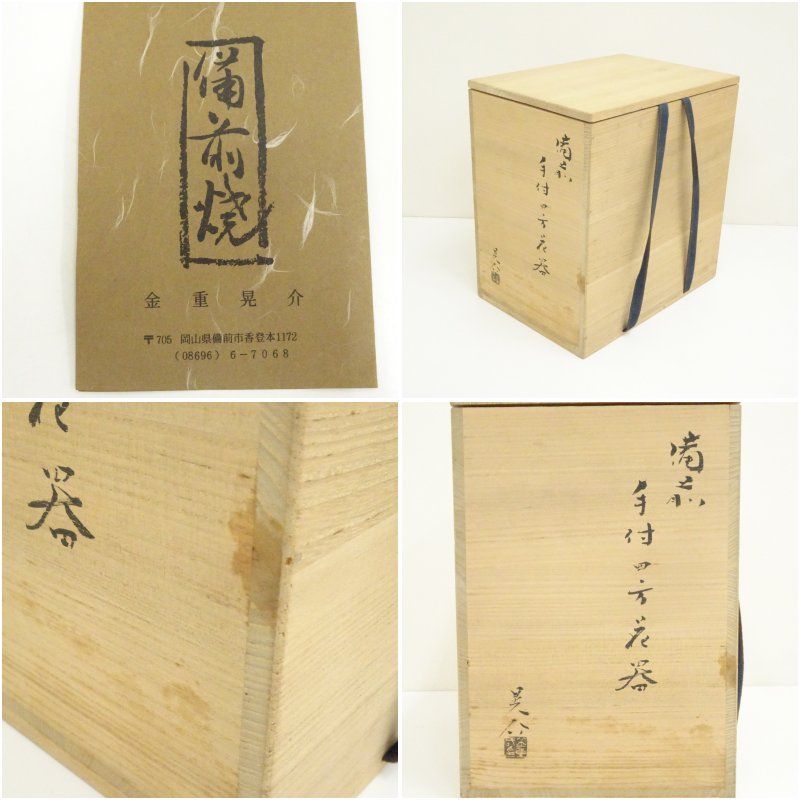 備前焼
金重晃介
〒705 岡山県備前市香登本1172
(08696) 6-7068
備前
手付四方花器
晃介
花器
備前
手付四方花器
晃介